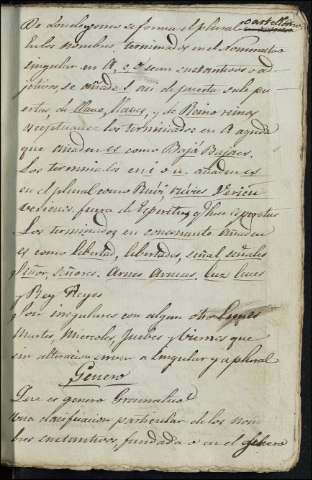 De donde y como se forma el plural castellano
En los nombres terminados en el nominativo
singular en A, e, o, sean sustantivos o ad
jetivos, se añade s, asi de puerta sale pu
ertas, de llave, llaves, y de Reino reinos
exceptuanse los terminados en A aguda
que añaden es como Bajá Bajaes.
Los terminados en i o u añaden es
en el plural como
fuera de Espiritu y Espiritus
Los terminados en consonante añaden
es como libertad, libertades, señal señales
Señor, señores. Arnes Arneses, Luz luces
y Rey Reyes
y los singulares con algun otro
Martes, Miercoles, Juebes y biernes que
sin alteracion sirven a singular y a plural
Genero
Que es genero Gramatical
una clasificacion particular de los nom
bres sustantivos, fundada o en el genero